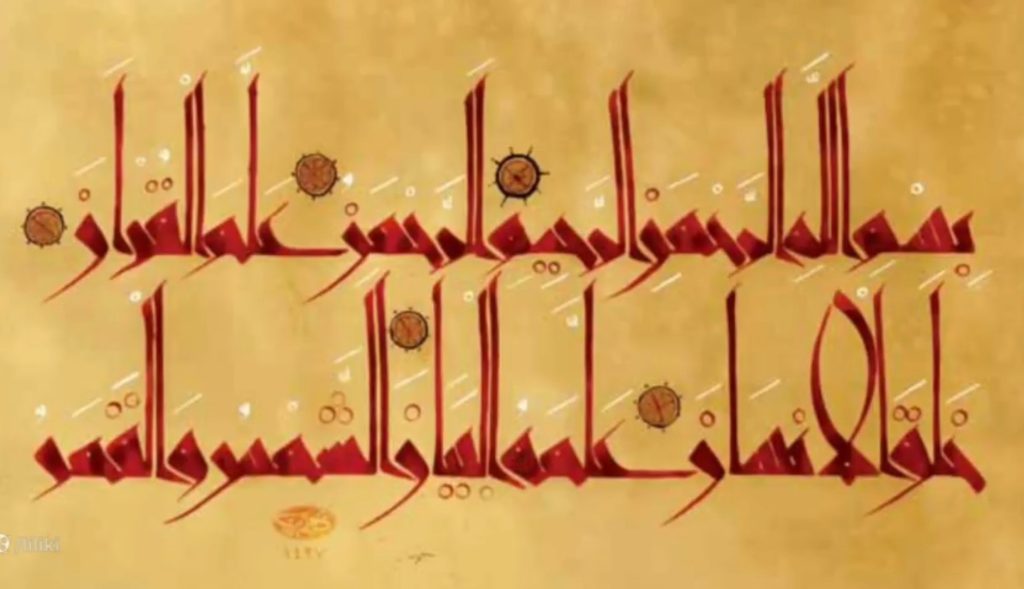 بِسْمِ اللَّهِ الرَّحْمَٰنِ الرَّحِيمِ الرَّحْمَٰنُ عَلَّمَ الْقُرْآنَ
خَلَقَ الْإِنسَانَ عَلَّمَهُ الْبَيَانَ الشَّمْسُ وَالْقَمَرُ